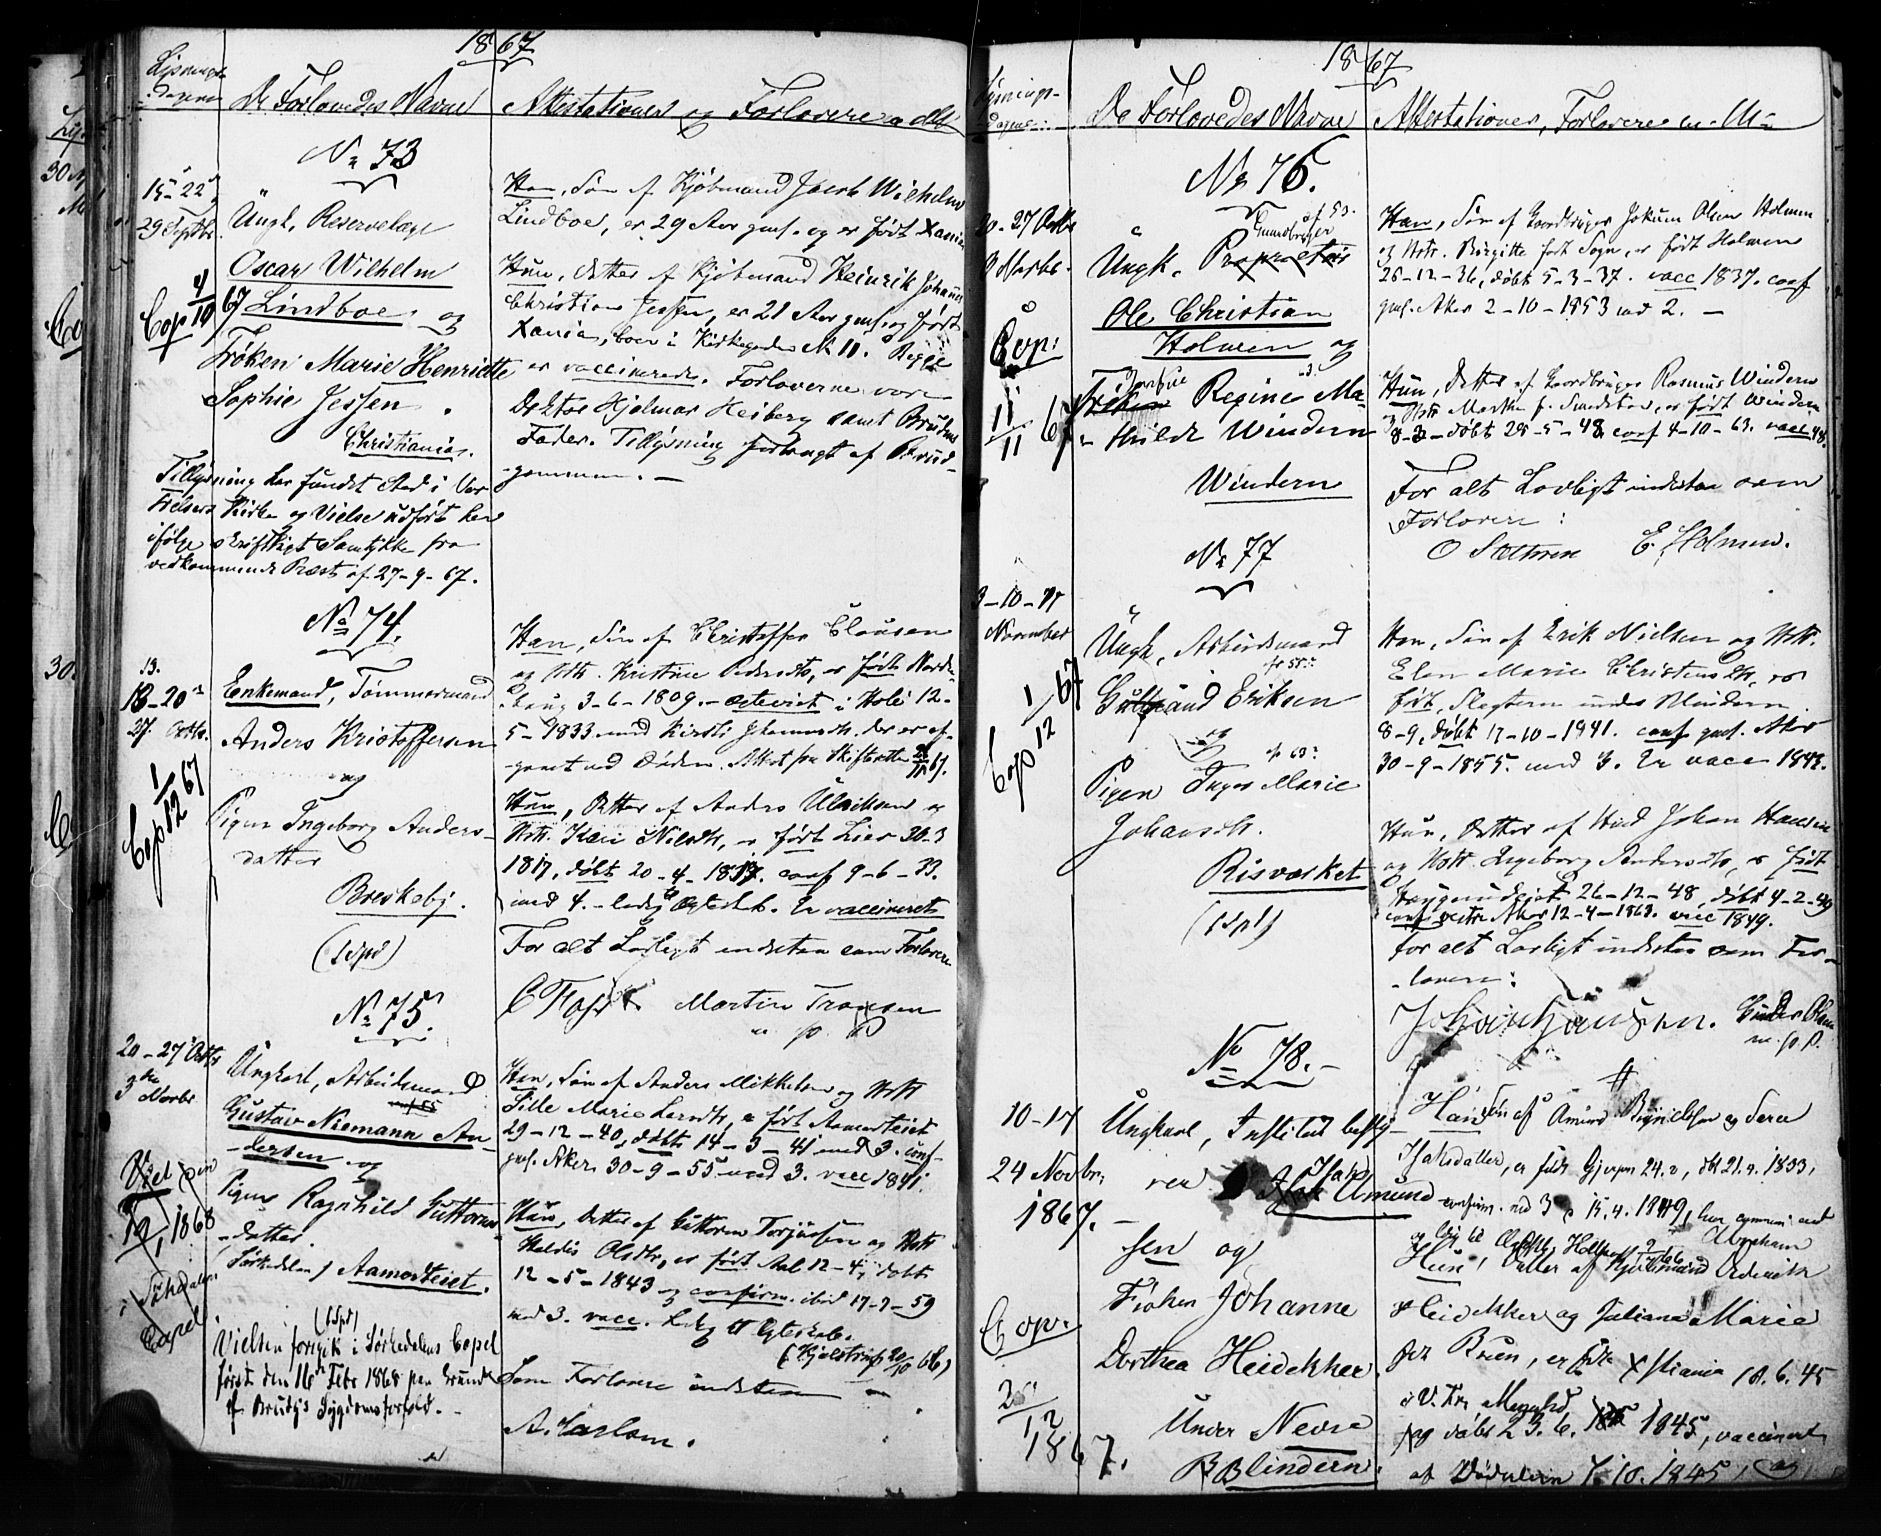 1867
Lysnings-
dagene
De Forlovedes Navne
Attestationer og Forlovere
No 73
15 - 22
29 Septbr.
Cop 4/10 67
Ungk. Reservelæge
Oscar Wilhelm
Lindboe og
Frøken Marie Henriette
Sophie Jessen.
Christiania.
Tillysning har fundet Sted i Vor
Frelsers Kirke og Vielse udført her
ifølge skriftligt Samtykke fra
vedkommende Præst af 27-9-67.
Han, Søn af Kjøbmand Jacob Wilhelm
Lindboe, er 29 Aar gml. og er født Xania
Hun, Datter af Kjøbmand Heinrik Johannes
Christian Jessen, er 21 Aar gml. og født
Xania, boer i Kirkegaden N 11. Begge
er vaccinerede. Forloverne vare
Doktor Hjalmar Heiberg samt Brudens
Fader. Tillysning forlangt af Brud-
gommen. —
No 74.
13.
20
27. Octbr.
Cop 1/12 67
Enkemand, Tømmermand
Anders Kristoffersen
og
Pigen Ingeborg Anders-
datter
Breskeby.
(1 Spd)
Han, Søn af Christoffer Clausen
og Hstr. Kristine Pedersdtr, er født Nord-
3-6-1809. - ægteviet i Hole 12-
5-1833 med Kirsti der er af-
gaaet ved Døden. Attest fra Skifteretten
Hun, Datter af Anders Ulriksen og
Hstr. Kari Nilsdtr, er født Lier 30-3
1817, døbt 20-4-1817. conf 9-6-33.
med 4. - ledig til Ægteskb. Er vaccineret
For alt Lovligt indestaa som Forlovere
Martin Fransen
m. p. P.
No 75.
20 - 27 Octbr
3 Novbr
Ungkarl, Arbeidsmand
Gustav Niemann An-
dersen og
Pigen Ragnhild Guttorms-
datter.
Sørkedalen, Aamorteiet.
(1 Spd)
Viet
19/1 1868
i Sørkedalens
Capel
Vielsen foregik i Sørkedalens Capel
først den 16de Febr 1868 paa Grund
af Bruds Sygdomsforfald. -
Han, Søn af Anders Mikkelsen og Hstr
Sille Marie Larsdtr, er født Aamorteiet
29-12-40, døbt 14-3-41 conf-
gml. Aker 30-9-55 med 3. vacc 1841.
Hun, Datter af Guttorm Torjusen og Hstr
Haldis Olsdtr, er født Aal 12-4, døbt
12-5-1843 og confirm. ibid 17-7-59
med 3. vacc. Ledig til Ægteskab.
Som Forlovere indestaa
A. Carlson.
1867
Lysnings-
dagene
De Forlovedes Navne
Attestationer, Forlovere m. M.
No 76.
20 - 27 Octbr
3 Novbr.
Cop:
11/11 67
af 53.
Gaardbruger
Ungk. Proprietær
Ole Christian
Holmen og
Frøken Regine Ma-
thilde Windern
Windern
Han, Søn af Gaardbruger Jokum Olsen Holmen
og Hstr. Birgitte født Sogn, er født Holmen
26-12-36, døbt 5-3-37. vacc 1837. conf
gml. Aker 2-10-1853 med 2. —
Hun, Datter af Gaardbruger Rasmus Windern
og Hstr Marthe f. Smedstad, er født Windern
8-3- døbt 28-5-48, conf 4-10-63. vacc 48.
For alt Lovligt indestaa som
Forlovere:
O Sætren E. Holmen.
No 77
3-10-17
November
Cop 1/12 67
Ungk, Arbeidsmand
Gulbrand Eriksen
og
Pigen Inger Marie
Johansdtr.
Risvasket
(1 Spd)
Han, Søn af Erik Nielsen og Hstr.
Elen Marie Christensdtr, er
født Slegtern under Windern
8-9, døbt 17-10-1841. conf gml. Aker
30-9-1855. med 3. Er vacc 1842.
Hun, Datter af Hmd Johan Hansen
og Hstr. Ingeborg Andersdtr, er født
26-12-48, døbt 4-2-49
conf vestre Aker 12-4-1863. vacc 1849.
For alt Lovligt indestaa som For-
lovere:
Johan Hansen.
m. p. P.
No 78. -
10 - 17
24 Novbr:
1867. -
Cop:
2/12
1867.
Ungkarl, Institutbesty-
rer Isak Amund
sen og
Frøken Johanne
Dorthea Heidekker.
Under Nevre
Blindern.
Han Søn af Amund Brynildsen og Sera
Isaksdatter, er født Gjerpen 24. 2, dbt 21. 4. 1833,
confirm. med 3 15. 4. 1849, har commun: ved
Hun, Datter af Kjøbmand Abraham Frederik
Heidekker og Juliane Marie
født Bruen, er født Xstiania 18. 6. 45
og døbt 23. 6. 1845, vaccineret
af 7. 10. 1845, og